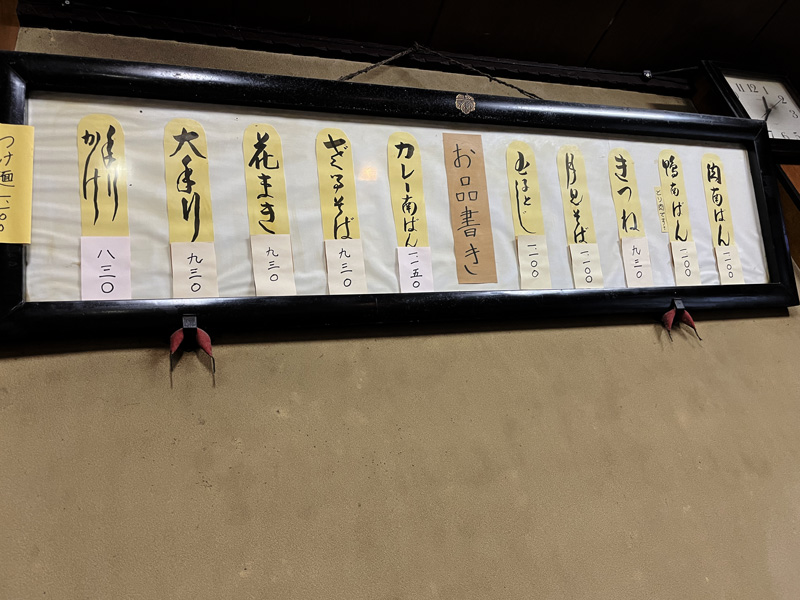 肉南ばん
一一〇〇
鴨南ばん
一一〇〇
きつね
九三〇
月見そば
一一〇〇
玉子とじ
一一〇〇
お品書き
カレー南ばん
一一五〇
ざるそば
九三〇
花まき
九三〇
大もり
九三〇
もり
かけ
八三〇
つけ麺 一一〇〇